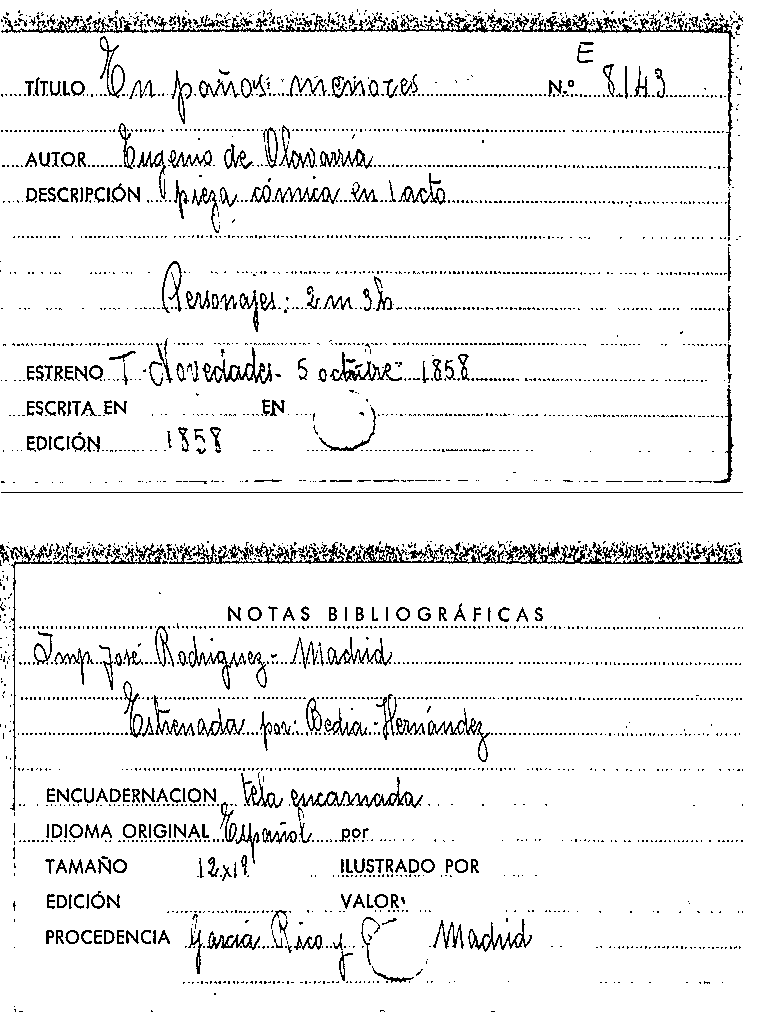 E
TÍTULO En paños menores N.º 8143
AUTOR Eugenio de Olavarría
DESCRIPCIÓN pieza cómica en 1 acto
Personajes: 2 m 3 h
ESTRENO T. Novedades - 5 octubre - 1858
ESCRITA EN EN
EDICIÓN 1858
NOTAS BIBLIOGRÁFICAS
Imp. José Rodriguez - Madrid
Estrenada por: Bedia - Hernández
ENCUADERNACION tela encarnada
IDIOMA ORIGINAL Español por
TAMAÑO 12x19 ILUSTRADO POR
EDICIÓN VALOR
PROCEDENCIA García Rico y Madrid